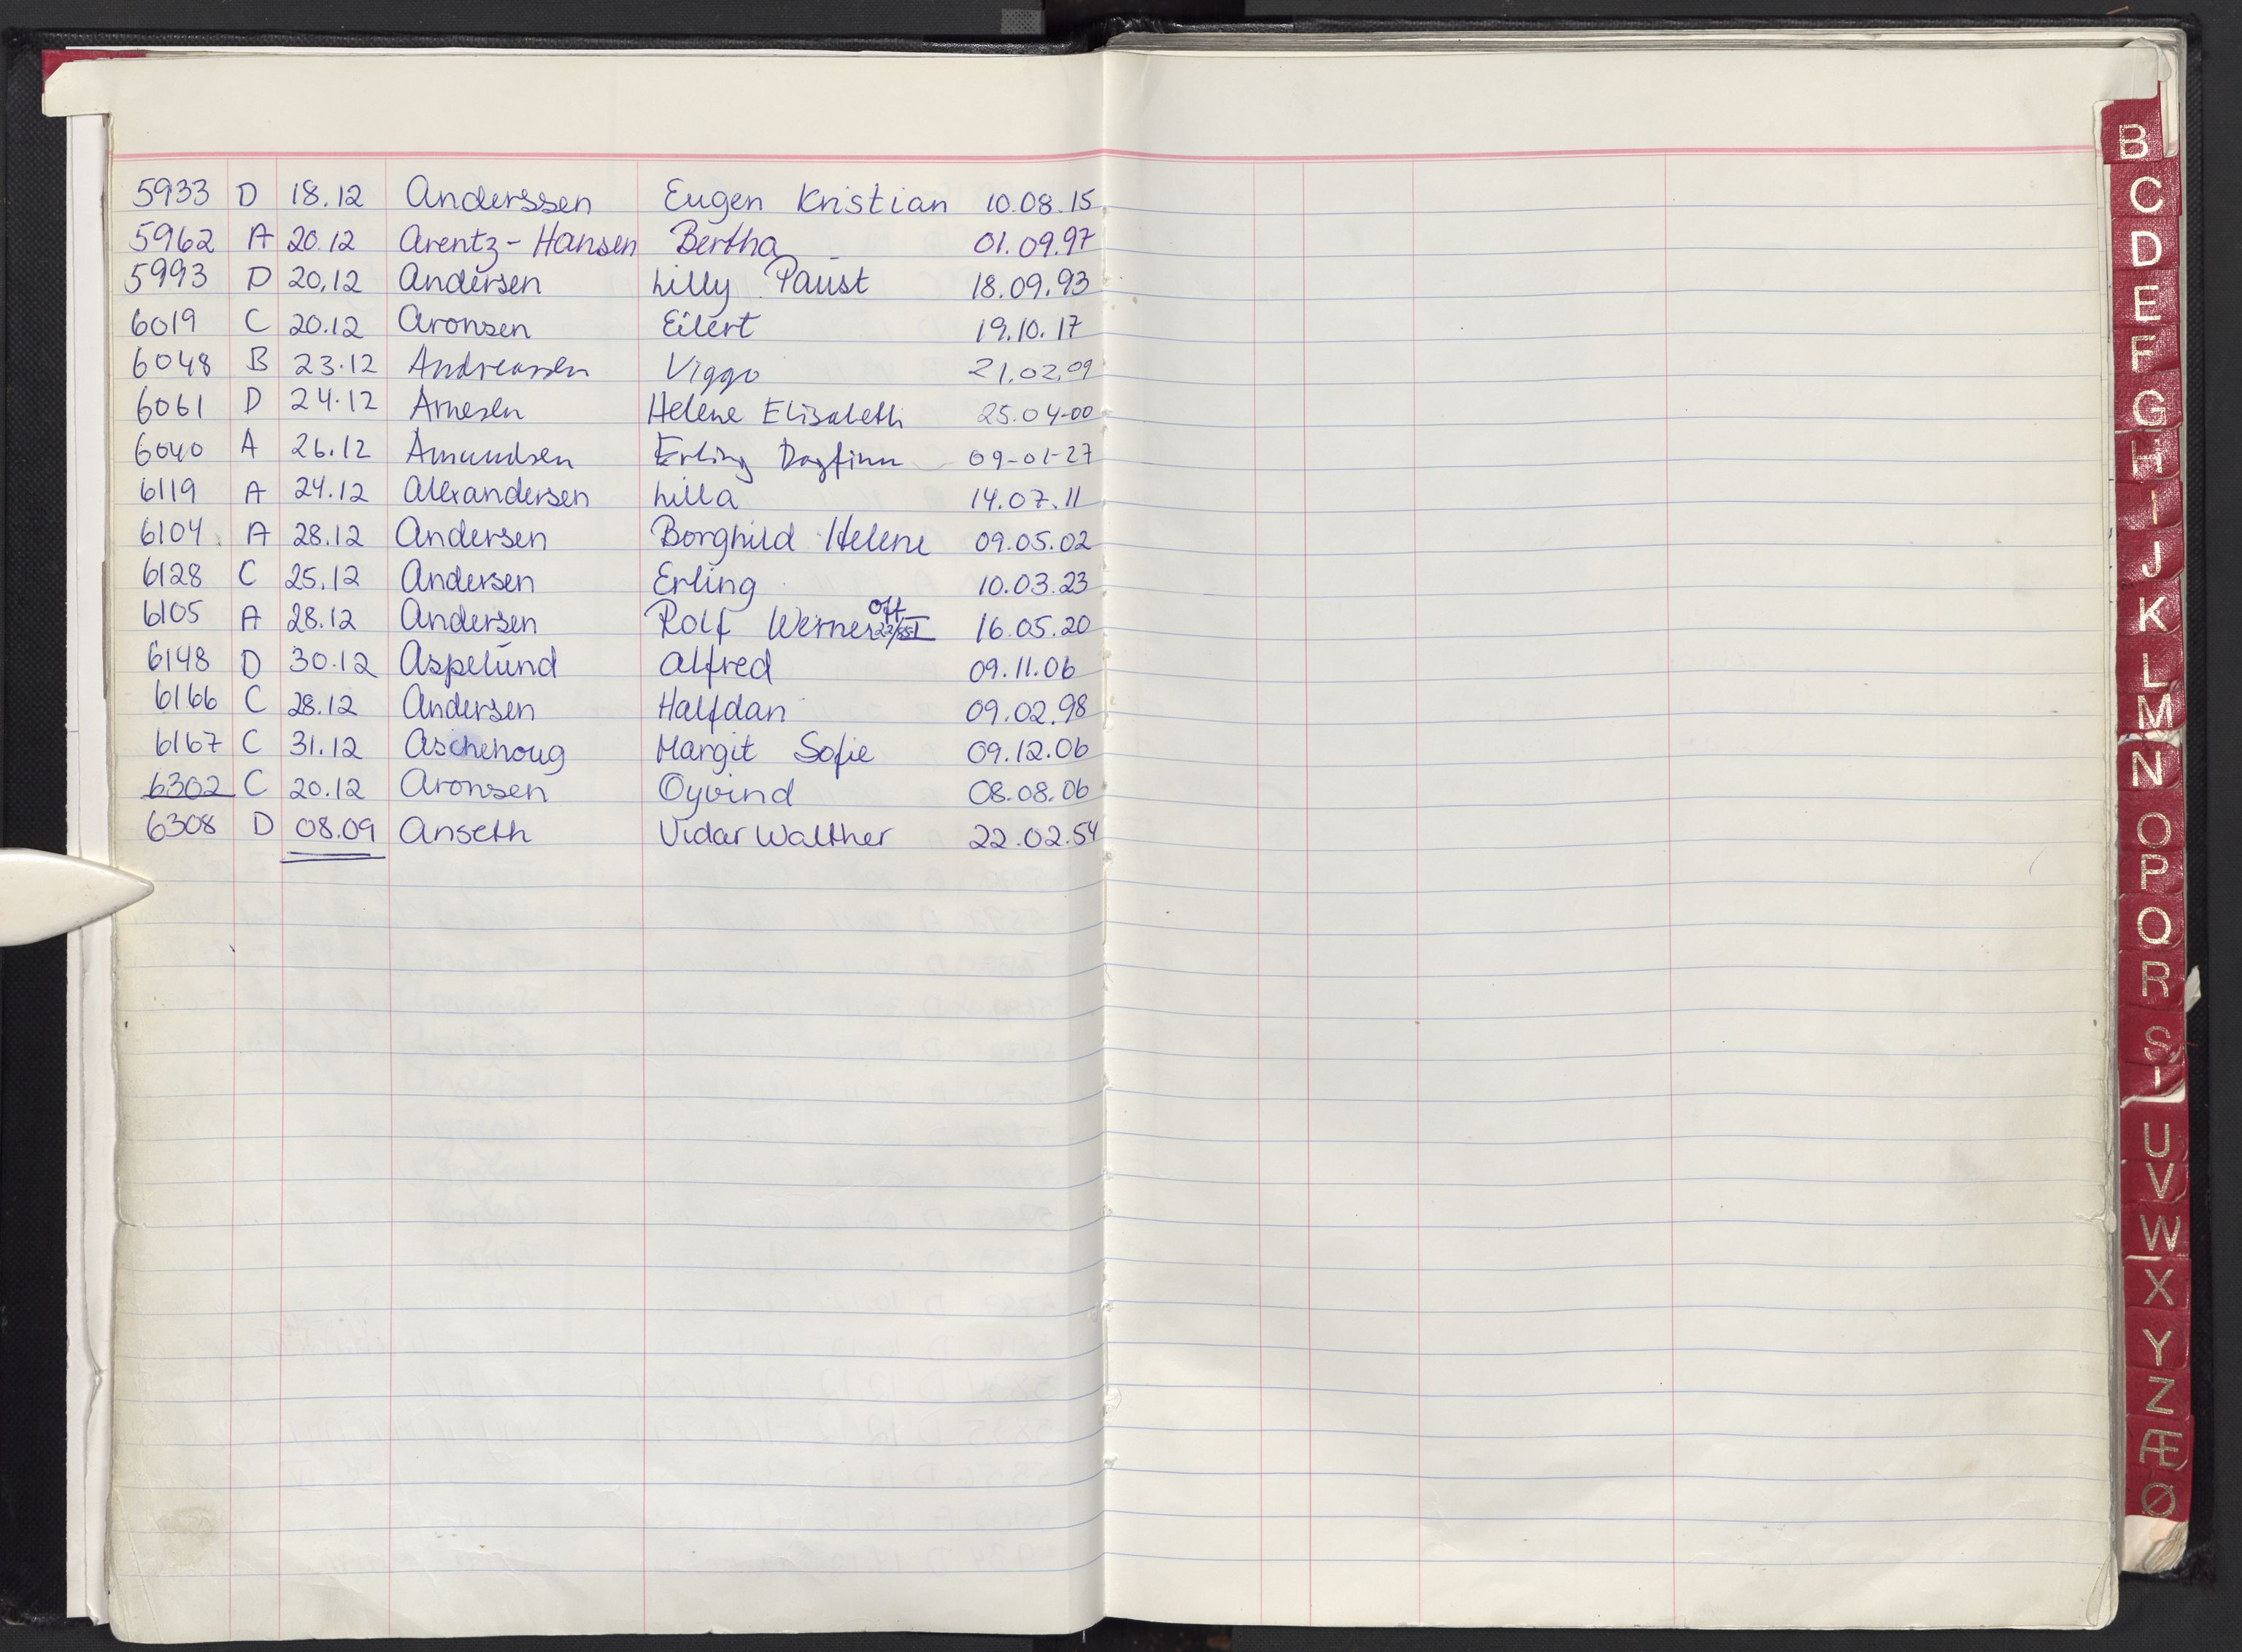 5933 D 18.12 Anderssen Eugen Kristian 10.08.15
5962 A 20.12 Arentz-Hansen Bertha 01.09.97
5993 D 20.12 Andersen Lilly Paust 18.09.93
6019 C 20.12 Aronsen Eilert 19.10.17
6048 B 23.12 Andreassen Viggo 21.02.09
6061 D 24.12 Arnesen Helene Elisabeth 25.04-00
6040 A 26.12 Amundsen Erling Dagfinn 09-01-27
6119 A 24.12 Alexandersen Lilla 14.07.11
6104 A 28.12 Andersen Borghild Helene 09.05.02
6128 C 25.12 Andersen Erling 10.03.23
6105 A 28.12 Andersen Rolf Werner off 16.05.20
6148 D 30.12 Aspelund Alfred 09.11.06
6166 C 28.12 Andersen Halfdan 09.02.98
6167 C 31.12 Aschehoug Margit Sofie 09.12.06
6302 C 20.12 Aronsen Oyvind 08.08.06
6308 D 08.09 Anseth Vidar Walther 22.02.54
B
C
D
E
F
G
H
I
J
K
L
M
N
O
P
Q
R
S
U
V
W
X
Y
Z
Æ
Ø